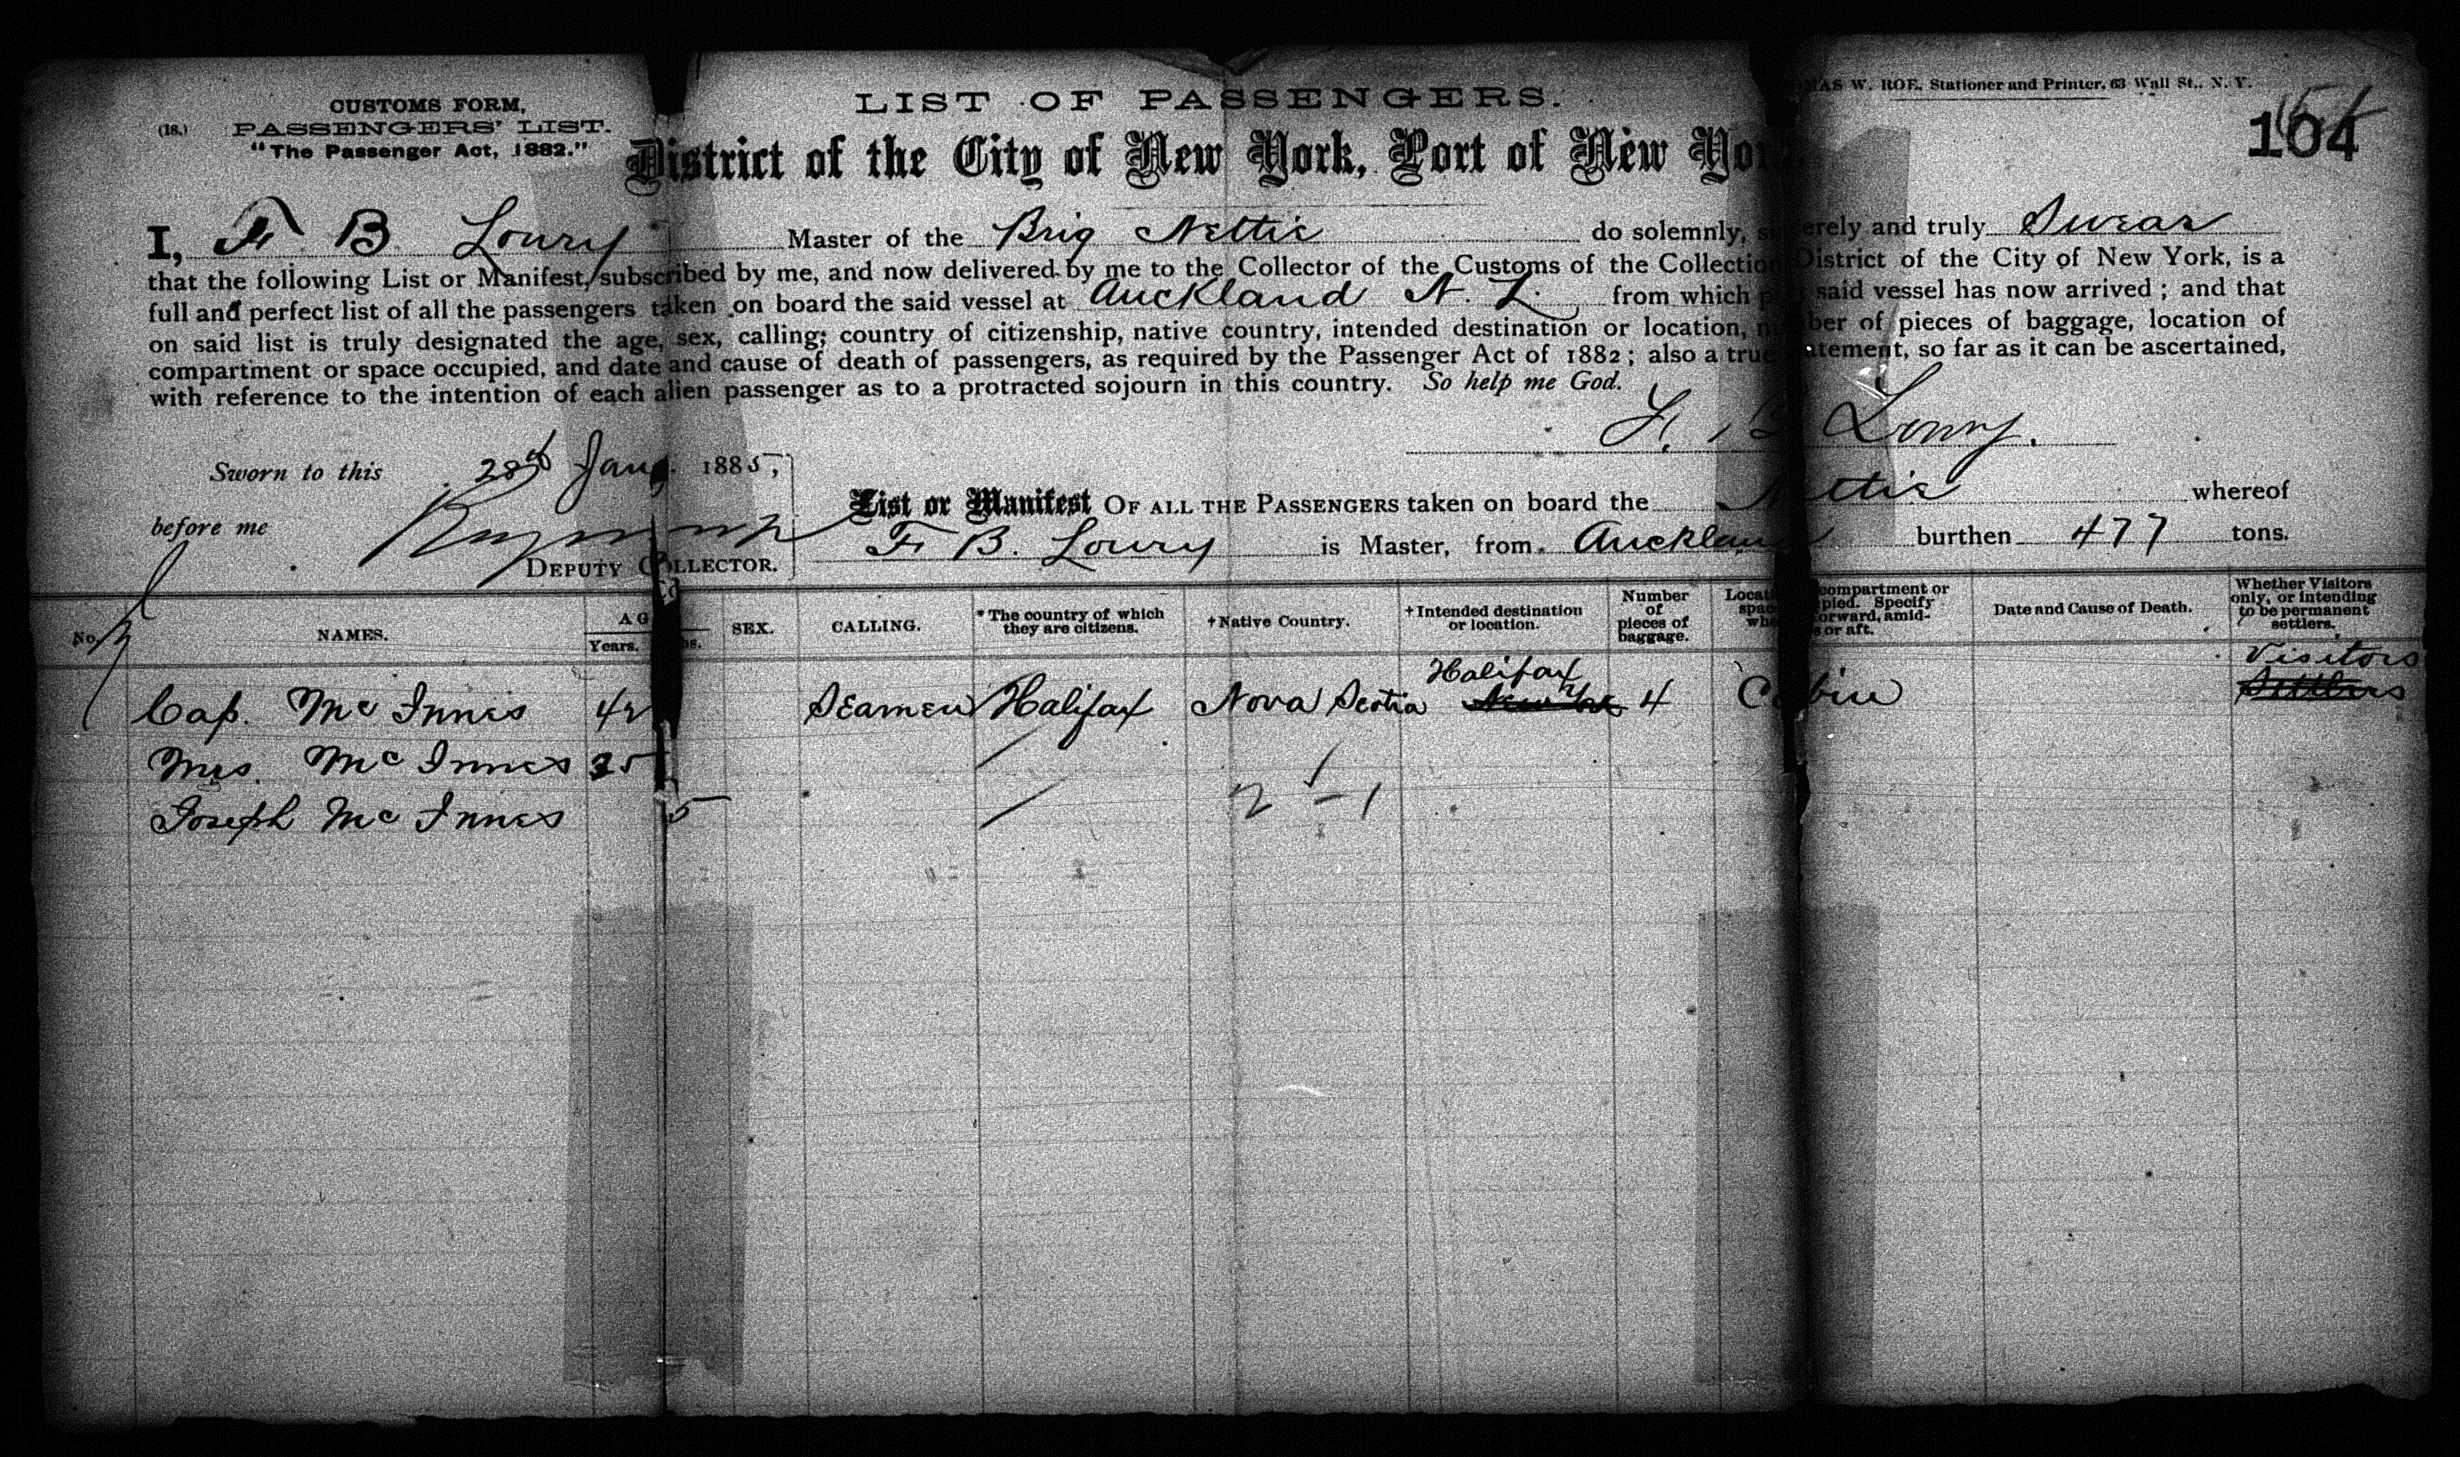 CUSTOMS FORM,
(18.) PASSENGERS' LIST.
"The Passenger Act, 1882."
LIST OF PASSENGERS.
MAS W. ROE, Stationer and Printer, 63 Wall St., N. Y.
104
District of the City of New York, Port of New Yor
I, F. B Loury Master of the Brig Nettie do solemnly, sincerely and truly Swear
that the following List or Manifest, subscribed by me, and now delivered by me to the Collector of the Customs of the Collection District of the City of New York, is a
full and perfect list of all the passengers taken on board the said vessel at Auckland N. Z. from which said vessel has now arrived; and that
on said list is truly designated the age, sex, calling; country of citizenship, native country, intended destination or location, number of pieces of baggage, location of
compartment or space occupied, and date and cause of death of passengers, as required by the Passenger Act of 1882; also a true statement, so far as it can be ascertained,
with reference to the intention of each alien passenger as to a protracted sojourn in this country. So help me God.
F. B Loury.
Sworn to this 28th Jany 1885,
before me
DEPUTY COLLECTOR.
List or Manifest OF ALL THE PASSENGERS taken on board the Nettie whereof
F. B. Loury is Master, from Auckland burthen 477 tons.
No. NAMES. AG Years. os. SEX. CALLING. *The country of which they are citizens. †Native Country. †Intended destination or location. Number of pieces of baggage. Locati compartment or space pied. Specify whe forward, amid- s or aft. Date and Cause of Death. Whether Visitors only, or intending to be permanent settlers.
Halifax Visitors
Cap. Mc Innes 42 Seamen Halifax Nova Scotia New York 4 Cabin Settlers
Mrs. Mc Innes 35 /
Joseph Mc Innes 5 / 2 - 1